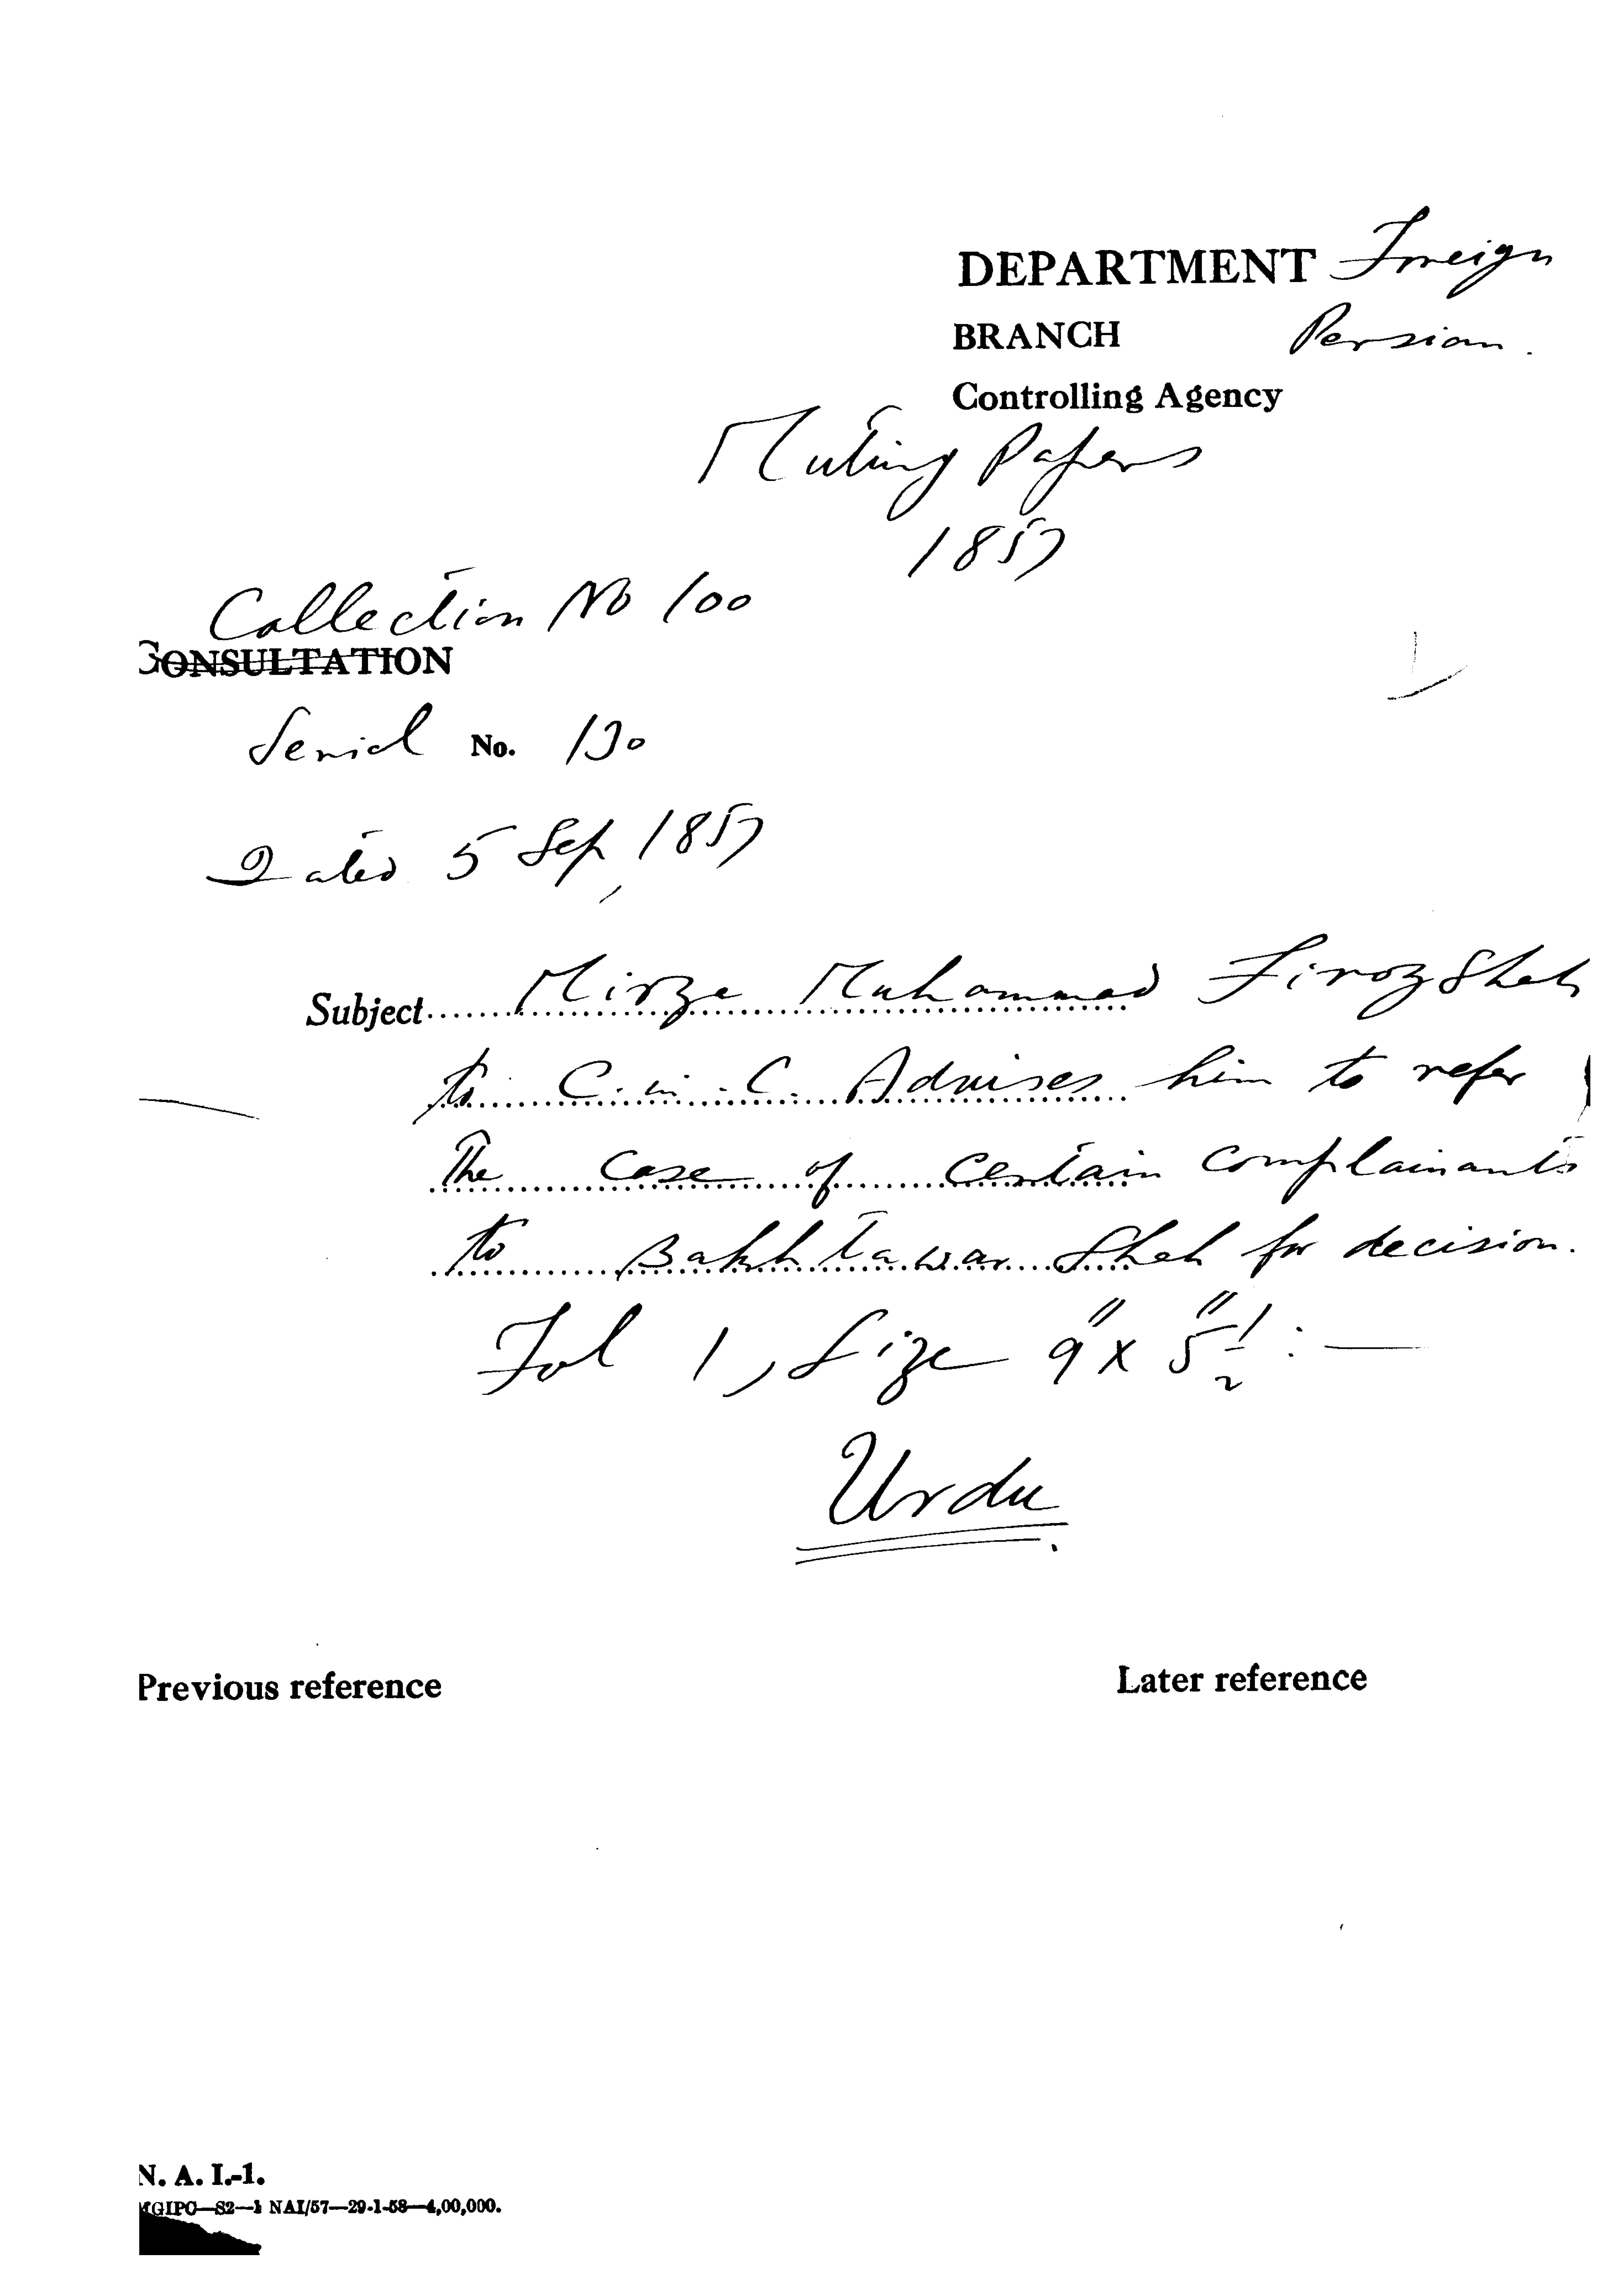 DEPARTMENT Foreign
BRANCH Persian.
Controlling Agency
Mutiny Papers
1857
Collection No 100
CONSULTATION
Serial No. 130
Dated 5 Sep 1857
Subject Mirza Muhammad Firoz Shah
to C.in.C. Advises him to refer
The case of certain complainants
to Bakhtawar Shah for decision.
Fol 1, Size 9" x 5"½ :—
Urdu.
Previous reference
Later reference
N. A. I.-1.
MGIPC—S2—1 NAI/57—29-1-58—4,00,000.